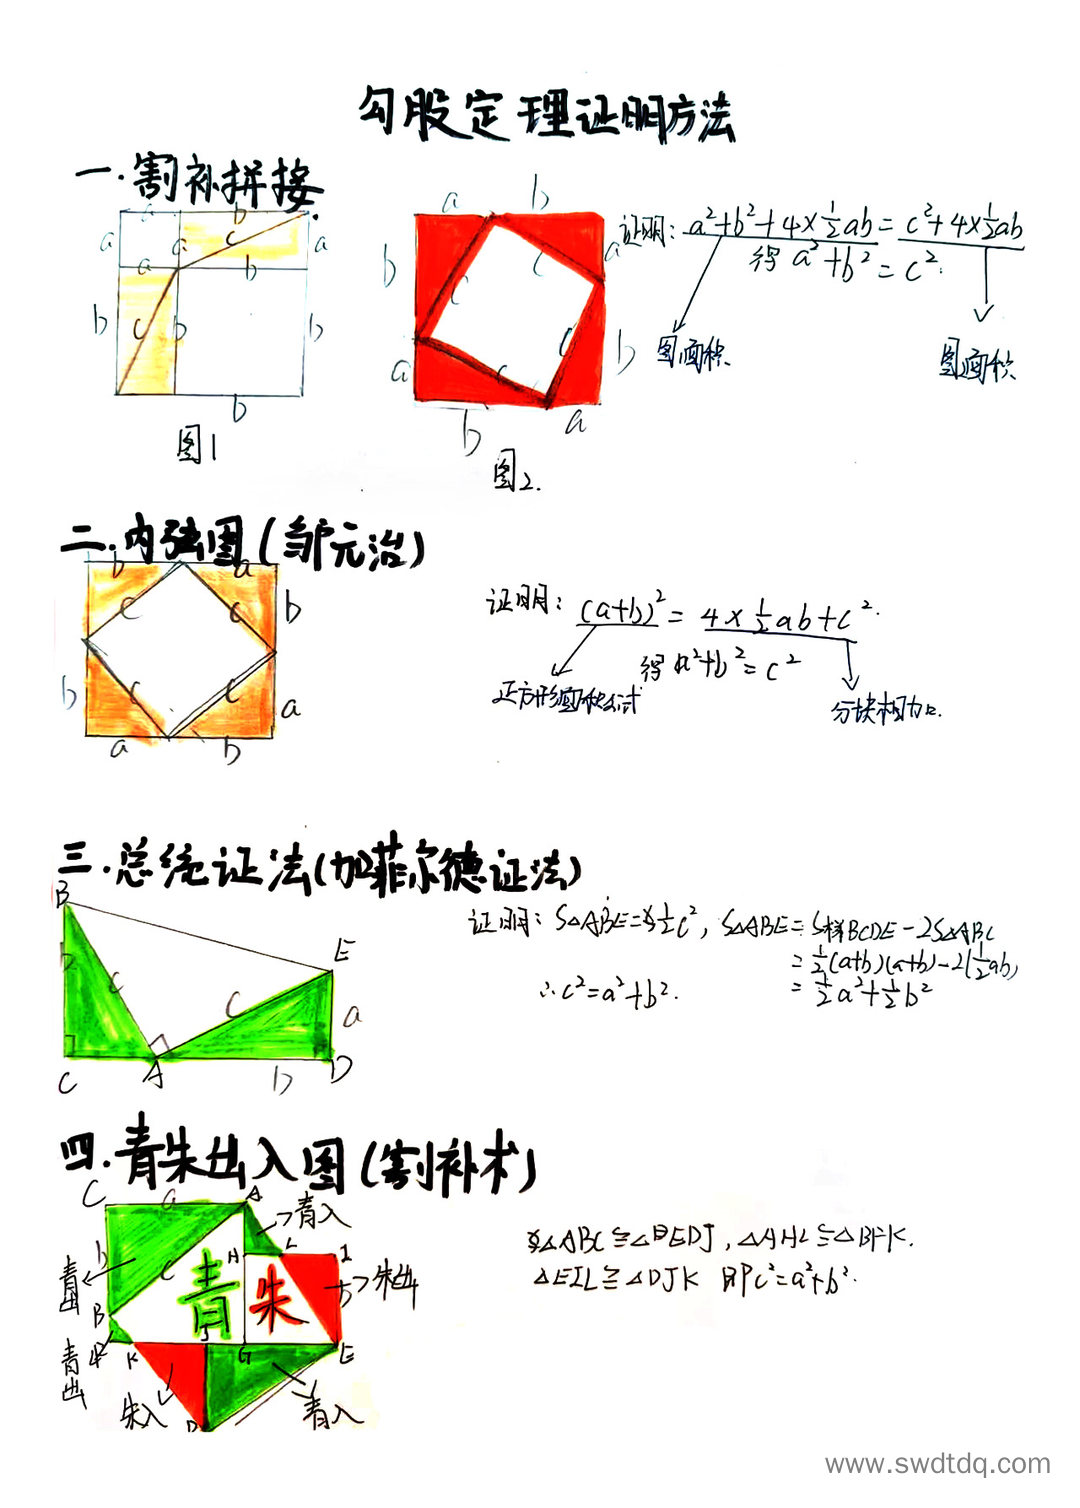 勾股定理证明方法
一.割补拼接
a b
a a c a
a b
b c b b
b
图1
a b
b c a
c c
a c b
b a
图2.
证明: a²+b²+4×½ab=c²+4×½ab
得 a²+b²=c².
图1面积
图2面积
二.内弦图(邹元治)
b a
c c b
b c c a
a b
证明: (a+b)²=4×½ab+c².
得 a²+b²=c²
正方形面积公式
分块相加.
三.总统证法(加菲尔德证法)
B
E
b c c a
C A b D
证明: S△ABE=½c², S△ABE=S梯BCDE-2S△ABC
=½(a+b)(a+b)-2(½ab)
=½a²+½b²
∴c²=a²+b².
四.青朱出入图(割补术)
C a A 青入
b c H L I
青出 青 朱 b 朱出
B
F K J G E
青出
朱入 D 青入
△ABC≌△BEDJ, △AHL≌△BFK.
△EIL≌△DJK 即c²=a²+b².
www.swdtdq.com